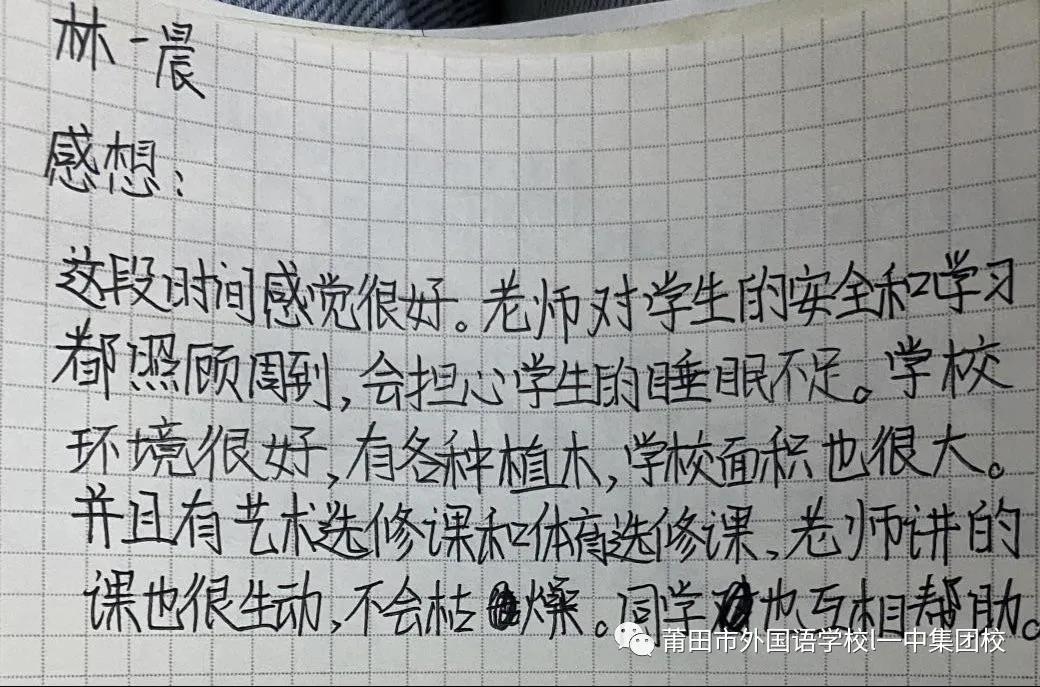 林一晨
感想：
这段时间感觉很好。老师对学生的安全和学习
都照顾周到,会担心学生的睡眠不足。学校
环境很好,有各种植木,学校面积也很大。
并且有艺术选修课和体育选修课、老师讲的
课也很生动,不会枯燥。同学也互相帮助。
莆田市外国语学校l一中集团校